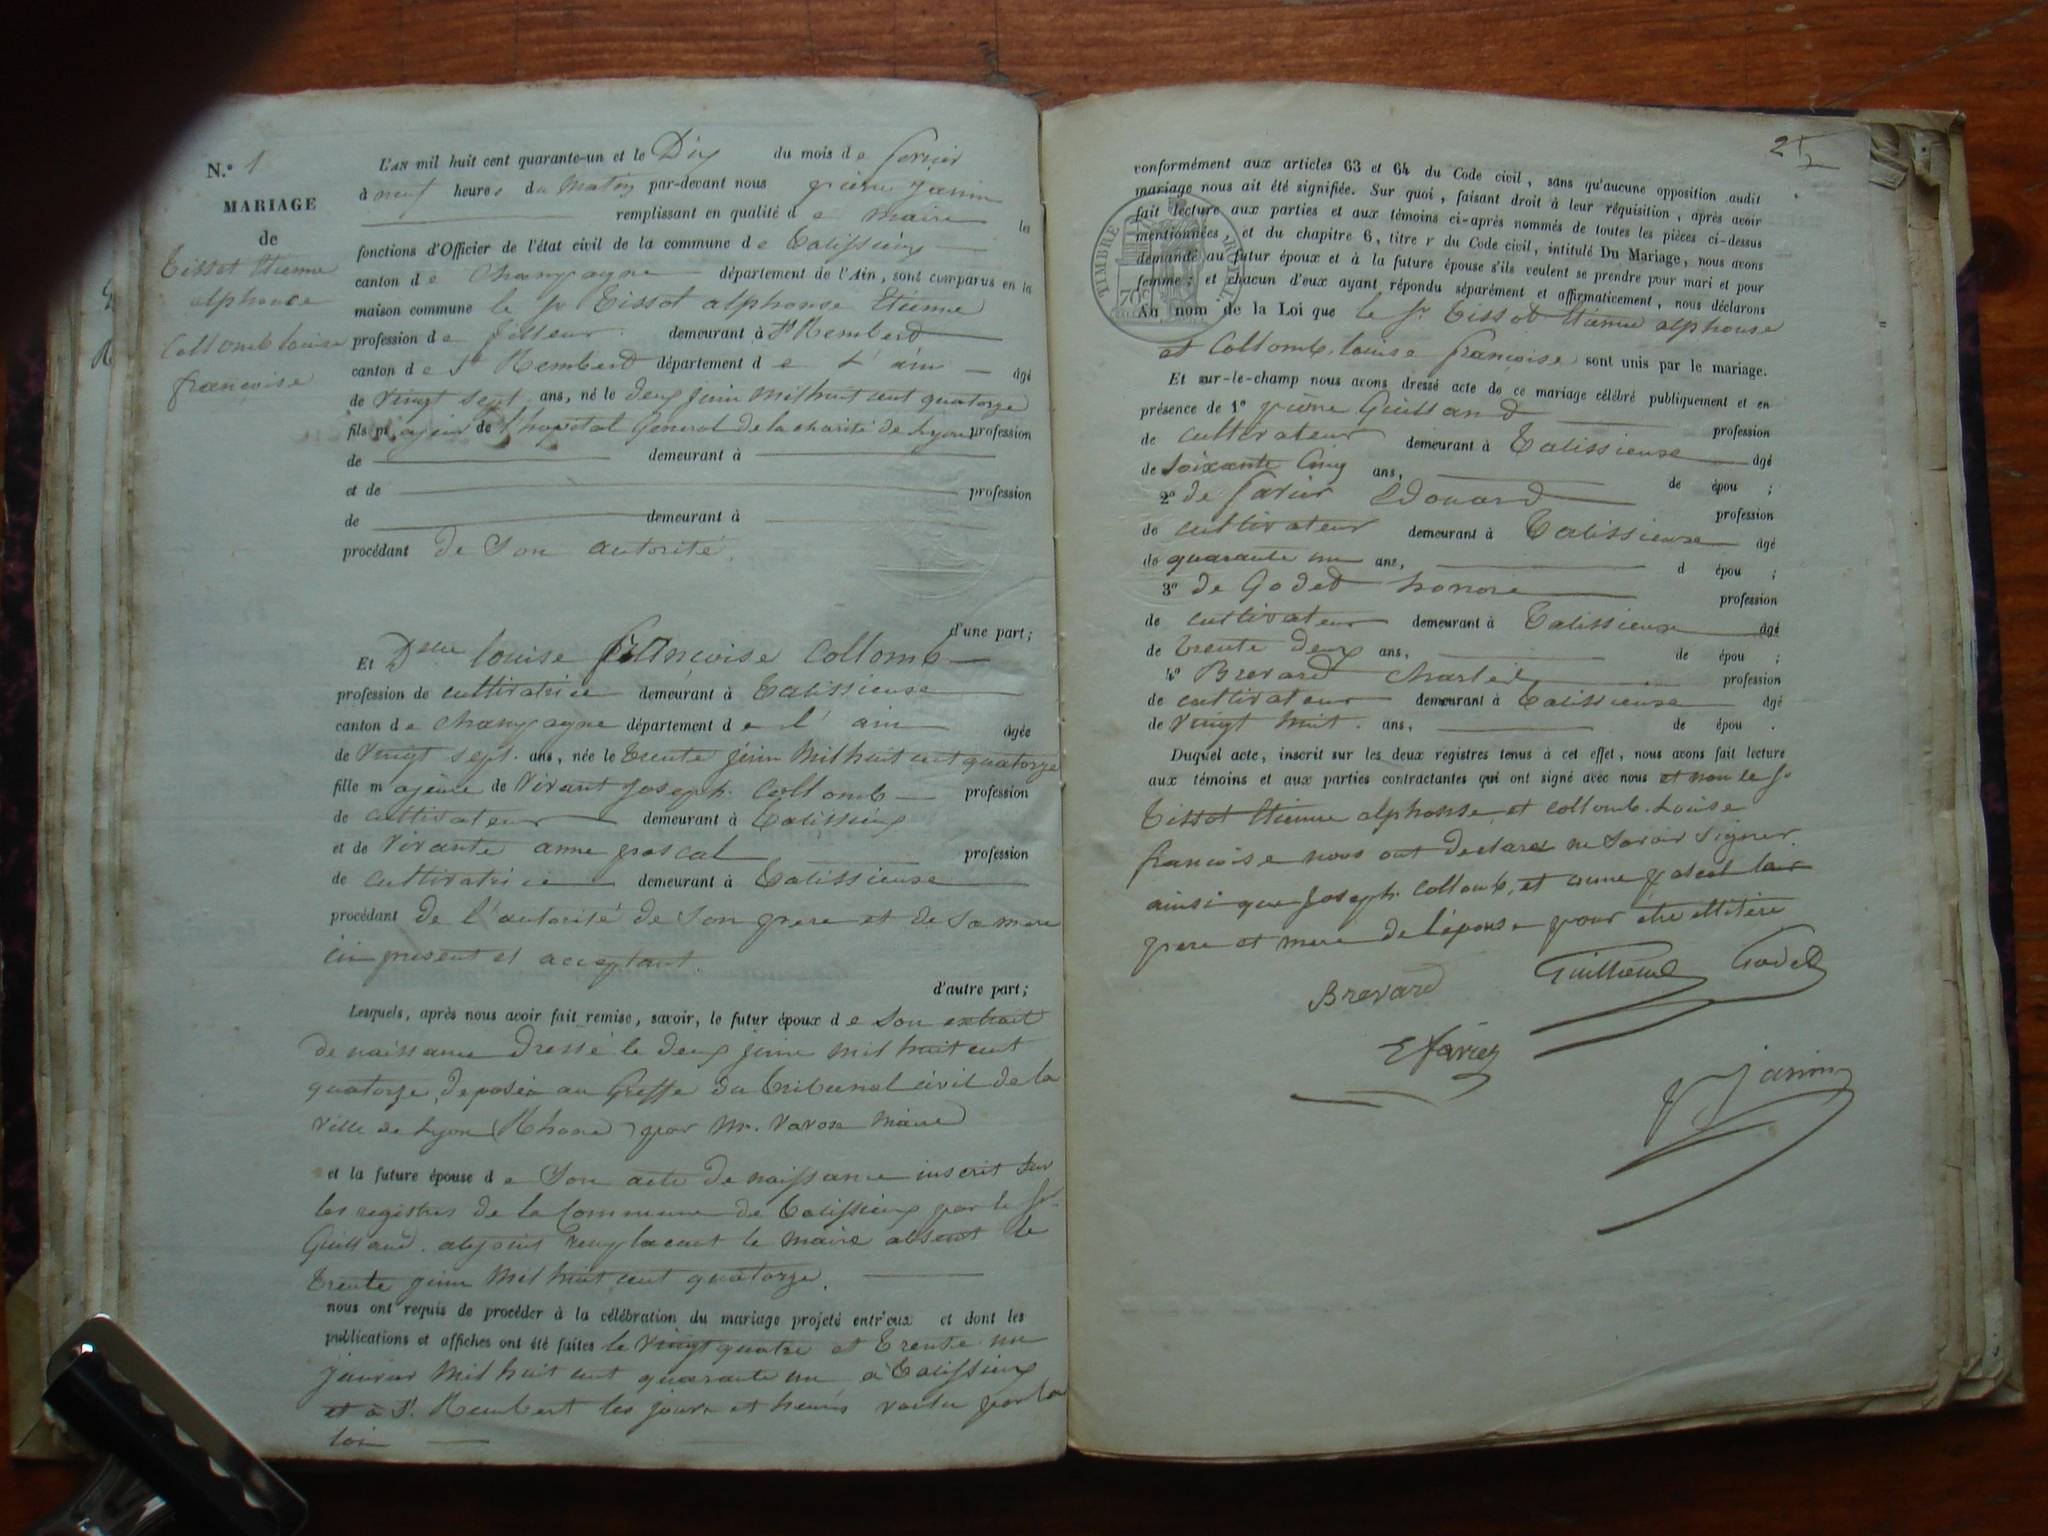 N.º 1
MARIAGE
de
Tissot Etienne
alphonse
Collomb louise
francoise
L'an mil huit cent quarante-un et le Dix du mois de fevrier
à neuf heures du matin par-devant nous pierre Janin
remplissant en qualité de maire les
fonctions d'Officier de l'état civil de la commune de Talissieux
canton de Champagne département de l'Ain, sont comparus en la
maison commune le Sr Tissot alphonse Etienne
profession de demeurant à St Rembert
canton de St Rembert département de L'ain âgé
de vingt sept ans, né le deux juin mil huit cent quatorze
fils majeur de l'hopital General de la charité de Lyon profession
de demeurant à
et de profession
de demeurant à
procédant de son autorité.
d'une part;
Et Delle louise francoise Collomb
profession de cultivatrice demeurant à Talissieuse
canton de champagne département de l'ain âgée
de vingt sept ans, née le trente juin mil huit cent quatorze
fille majeure de vivant joseph Collomb profession
de cultivateur demeurant à Talissieux
et de vivante anne pascal profession
de cultivatrice demeurant à Talissieuse
procédant de l'autorité de son pere et de sa mere
ici present et acceptant.
d'autre part;
Lesquels, après nous avoir fait remise, savoir, le futur époux de son extrait
de naissance dressé le deux juin mil huit cent
quatorze, deposée au Greffe du tribunal civil de la
ville de Lyon (Rhone) par Mr. maire
et la future épouse de son acte de naissance inscrit sur
les registres de la Commune de Talissieux par le Sr
Guilland adjoint remplacant le maire absent le
trente juin mil huit cent quatorze.
nous ont requis de procéder à la célébration du mariage projeté entr'eux et dont les
publications et affiches ont été faites le vingt quatre et trente un
janvier mil huit cent quarante un à Talissieux
et à St. Rembert les jours et heures voulu par la
loi
25
conformément aux articles 63 et 64 du Code civil, sans qu'aucune opposition audit
mariage nous ait été signifiée. Sur quoi, faisant droit à leur réquisition, après avoir
fait lecture aux parties et aux témoins ci-après nommés de toutes les pièces ci-dessus
mentionnées, et du chapitre 6, titre v du Code civil, intitulé Du Mariage, nous avons
demandé au futur époux et à la future épouse s'ils veulent se prendre pour mari et pour
femme; et chacun d'eux ayant répondu séparément et affirmativement, nous déclarons
Au nom de la Loi que le Sr Tissot Etienne alphonse
et Collomb louise francoise sont unis par le mariage.
TIMBRE ROYAL
70c
Et sur-le-champ nous avons dressé acte de ce mariage célébré publiquement et en
présence de 1º pierre Guilland profession
de cultivateur demeurant à Talissieuse âgé
de soixante cinq ans, de épou ;
2º de favier Edouard profession
de cultivateur demeurant à Talissieuse âgé
de quarante un ans, d épou ;
3º de Godet honore profession
de cultivateur demeurant à Talissieuse âgé
de trente deux ans, de épou ;
4º Brevard Charles profession
de cultivateur demeurant à Talissieuse âgé
de vingt huit ans, de épou .
Duquel acte, inscrit sur les deux registres tenus à cet effet, nous avons fait lecture
aux témoins et aux parties contractantes qui ont signé avec nous et non le Sr
Tissot Etienne alphonse et Collomb Louise
francoise nous ont declarer ne savoir signer
ainsi que joseph Collomb, et anne pascal leur
pere et mere de l'épouse pour etre
Brevard Guilland Godet
E favier
Janin